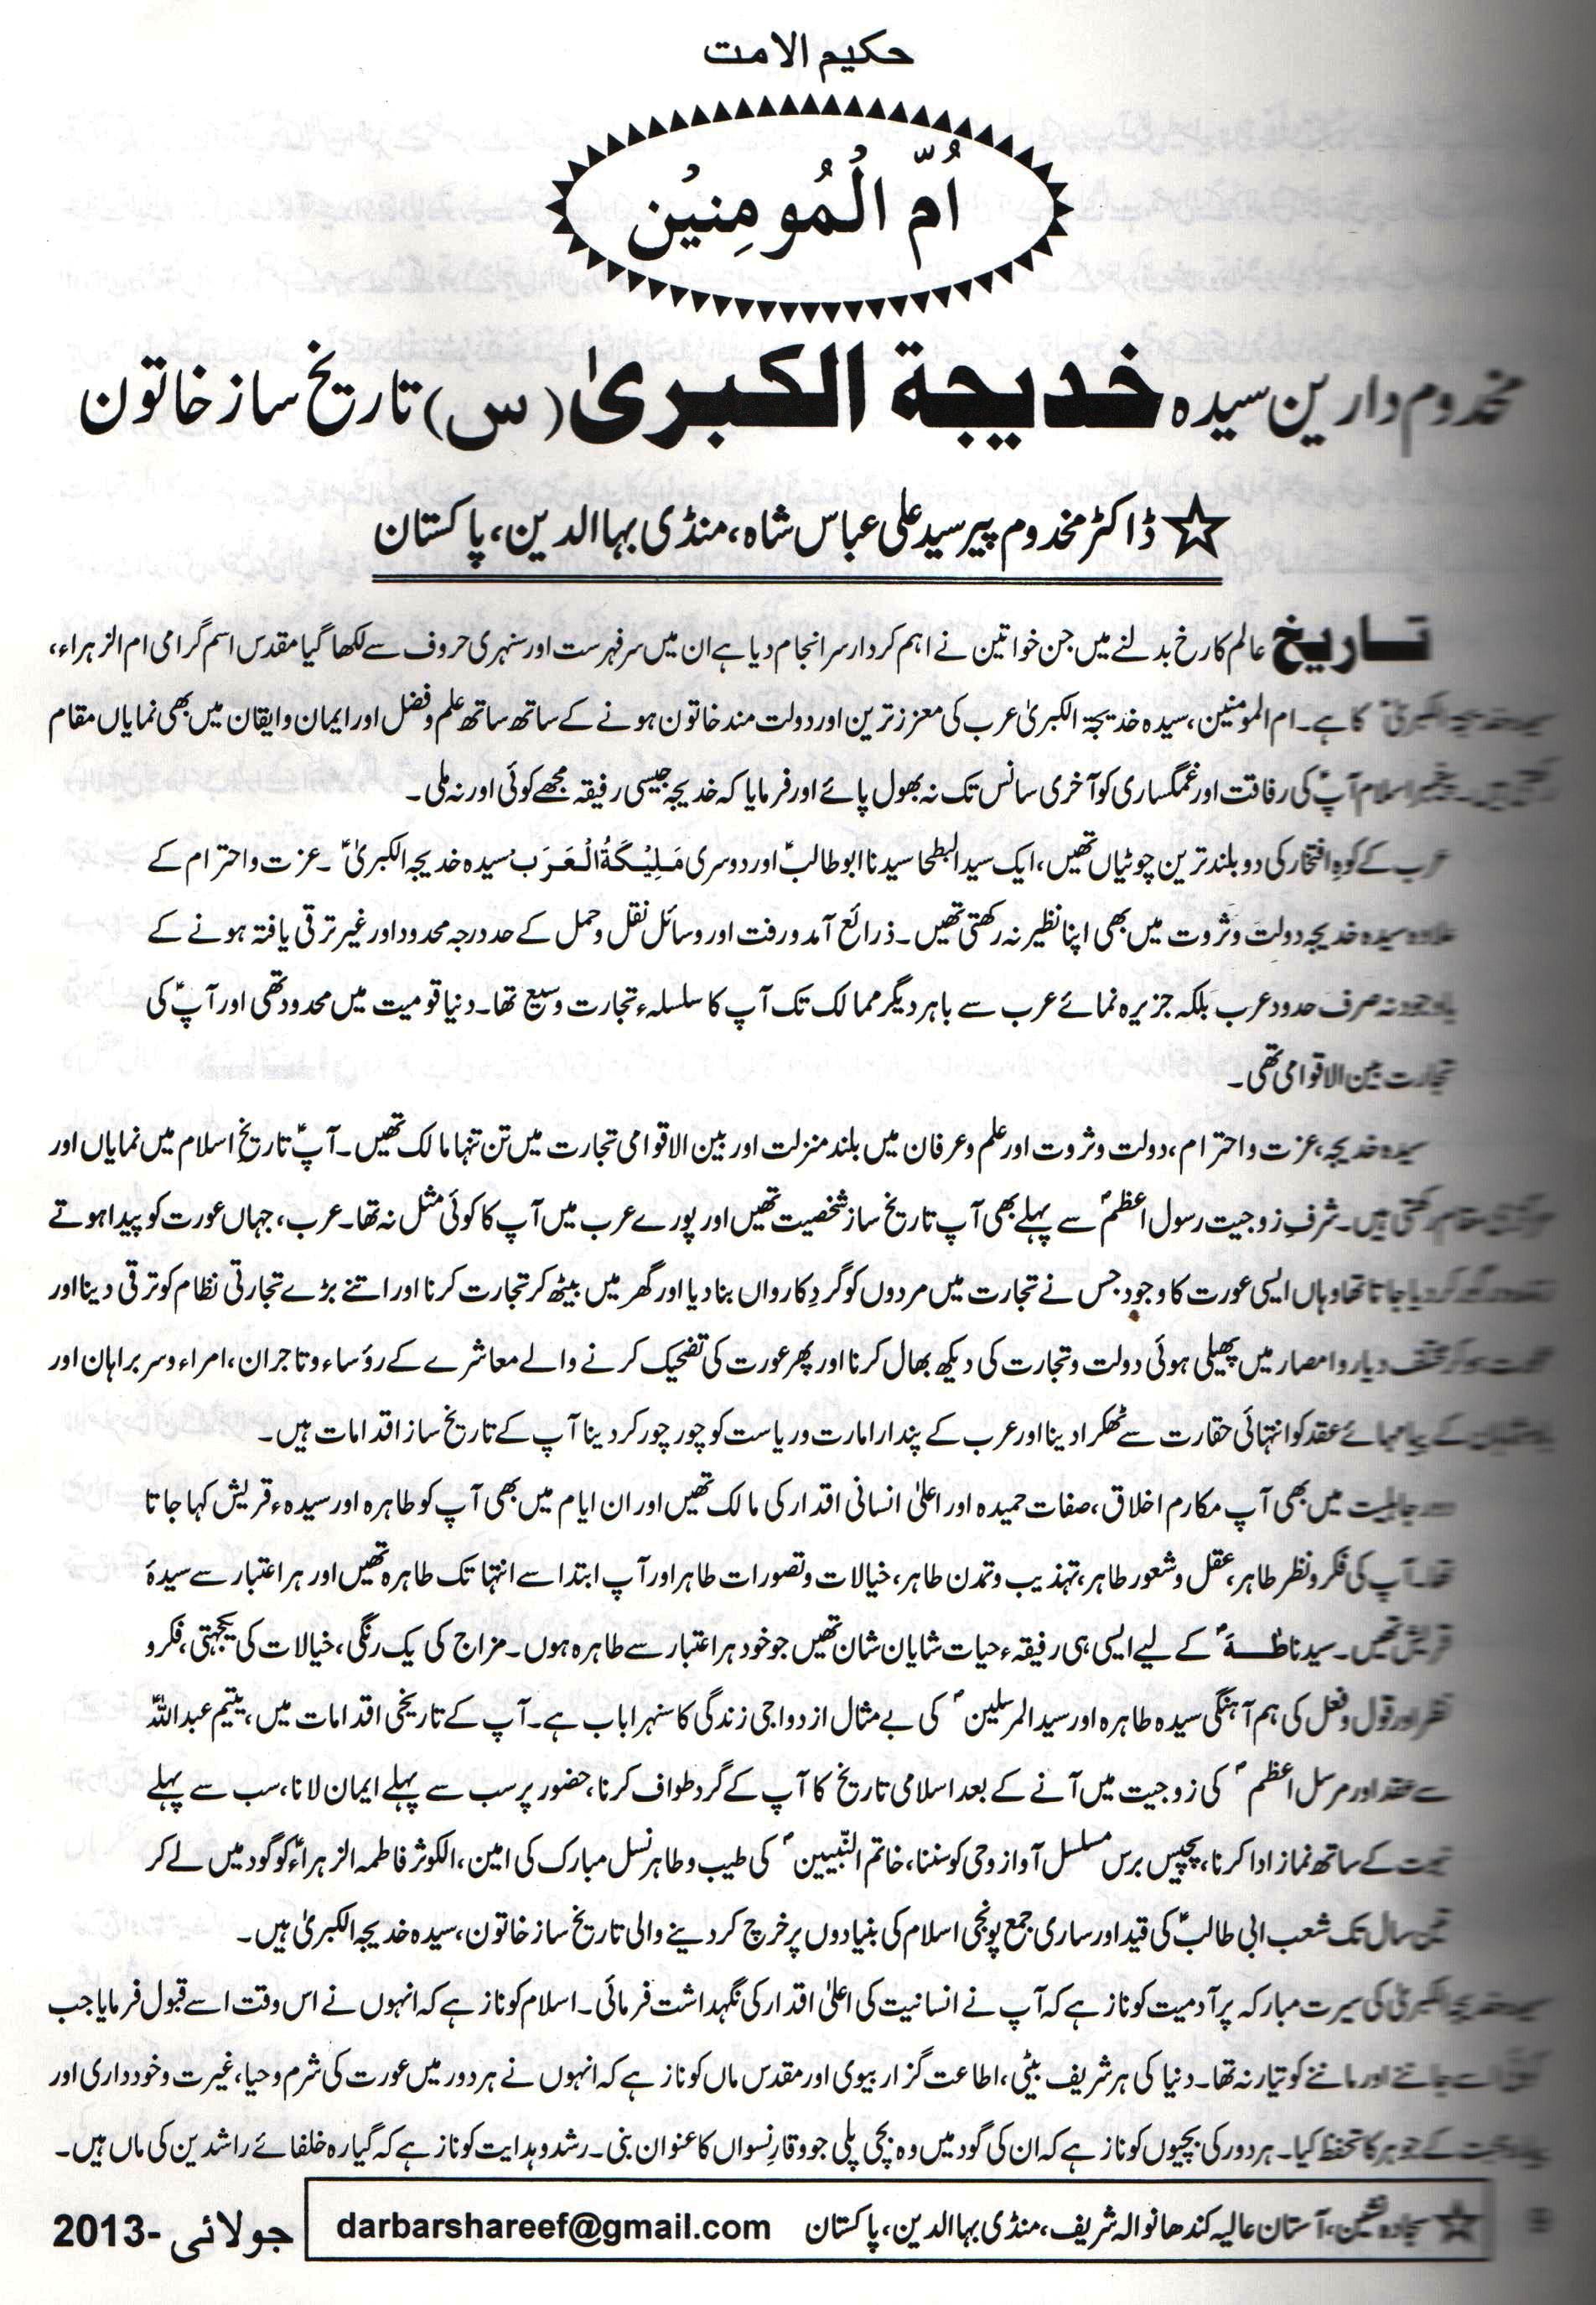 حکیم الامت
اُمّ الْمُومِنیْن
مخدوم دارین سیدہ خدیجۃ الکبریٰ (س) تاریخ ساز خاتون
☆ ڈاکٹر مخدوم پیر سید علی عباس شاہ، منڈی بہاالدین، پاکستان
تاریخ عالم کا رخ بدلنے میں جن خواتین نے اہم کردار سر انجام دیا ہے ان میں سر فہرست اور سنہری حروف سے لکھا گیا مقدس اسم گرامی ام الزہراء،
سیدہ خدیجۃ الکبریٰؑ کا ہے۔ ام المومنین، سیدہ خدیجۃ الکبریٰ عرب کی معزز ترین اور دولت مند خاتون ہونے کے ساتھ ساتھ علم و فضل اور ایمان و ایقان میں بھی نمایاں مقام
رکھتی ہیں۔ پیغمبر اسلام آپؑ کی رفاقت اور غمگساری کو آخری سانس تک نہ بھول پائے اور فرمایا کہ خدیجہ جیسی رفیقہ مجھے کوئی اور نہ ملی۔
عرب کے کوہِ افتخار کی دو بلند ترین چوٹیاں تھیں، ایک سید البطحا سیدنا ابو طالبؑ اور دوسری مَلِیْکَۃُ الْعَرَب سیدہ خدیجہ الکبریٰؑ ۔ عزت و احترام کے
علاوہ سیدہ خدیجہ دولت و ثروت میں بھی اپنا نظیر نہ رکھتی تھیں۔ ذرائع آمد و رفت اور وسائل نقل و حمل کے حد درجہ محدود اور غیر ترقی یافتہ ہونے کے
باوجود نہ صرف حدود عرب بلکہ جزیرہ نمائے عرب سے باہر دیگر ممالک تک آپ کا سلسلہء تجارت وسیع تھا۔ دنیا قومیت میں محدود تھی اور آپؑ کی
تجارت بین الاقوامی تھی۔
سیدہ خدیجہ، عزت و احترام، دولت و ثروت اور علم و عرفان میں بلند منزلت اور بین الاقوامی تجارت میں تن تنہا مالک تھیں۔ آپؑ تاریخِ اسلام میں نمایاں اور
مقام رکھتی ہیں۔ شرفِ زوجیت رسول اعظمؐ سے پہلے بھی آپ تاریخ ساز شخصیت تھیں اور پورے عرب میں آپ کا کوئی مثل نہ تھا۔ عرب، جہاں عورت کو پیدا ہوتے
زندہ در گور کر دیا جاتا تھا وہاں ایسی عورت کا وجود جس نے تجارت میں مردوں کو گردِ کارواں بنا دیا اور گھر میں بیٹھ کر تجارت کرنا اور اتنے بڑے تجارتی نظام کو ترقی دینا اور
عورت ہو کر مختلف دیار و امصار میں پھیلی ہوئی دولت و تجارت کی دیکھ بھال کرنا اور پھر عورت کی تضحیک کرنے والے معاشرے کے رؤساء و تاجران، امراء و سربراہان اور
کے پیامہائے عقد کو انتہائی حقارت سے ٹھکرا دینا اور عرب کے پندار امارت و ریاست کو چور چور کر دینا آپ کے تاریخ ساز اقدامات ہیں۔
دور جاہلیت میں بھی آپ مکارم اخلاق، صفات حمیدہ اور اعلیٰ انسانی اقدار کی مالک تھیں اور ان ایام میں بھی آپ کو طاہرہ اور سیدہء قریش کہا جاتا
تھا۔ آپ کی فکر و نظر طاہر، عقل و شعور طاہر، تہذیب و تمدن طاہر، خیالات و تصورات طاہر اور آپ ابتدا سے انتہا تک طاہرہ تھیں اور ہر اعتبار سے سیدۂ
قریش تھیں۔ سیدنا طٰہٰؐ کے لیے ایسی ہی رفیقہء حیات شایان شان تھیں جو خود ہر اعتبار سے طاہرہ ہوں۔ مزاج کی یک رنگی، خیالات کی یکجہتی، فکر و
نظر اور قول و فعل کی ہم آہنگی سیدہ طاہرہ اور سید المرسلینؐ کی بے مثال ازدواجی زندگی کا سنہرا باب ہے۔ آپ کے تاریخی اقدامات میں، یتیم عبداللہؑ
سے عقد اور مرسل اعظمؐ کی زوجیت میں آنے کے بعد اسلامی تاریخ کا آپ کے گرد طواف کرنا، حضور پر سب سے پہلے ایمان لانا، سب سے پہلے
کے ساتھ نماز ادا کرنا، پچیس برس مسلسل آواز وحی کو سننا، خاتم النّبیینؐ کی طیب و طاہر نسل مبارک کی امین، الکوثر فاطمہ الزہراءؑ کو گود میں لے کر
تین سال تک شعب ابی طالبؑ کی قید اور ساری جمع پونجی اسلام کی بنیادوں پر خرچ کر دینے والی تاریخ ساز خاتون، سیدہ خدیجہ الکبریٰ ہیں۔
سیدہ خدیجہ الکبریٰ کی سیرت مبارکہ پر آدمیت کو ناز ہے کہ آپ نے انسانیت کی اعلیٰ اقدار کی نگہداشت فرمائی۔ اسلام کو ناز ہے کہ انہوں نے اس وقت اسے قبول فرمایا جب
کوئی اسے جاننے اور ماننے کو تیار نہ تھا۔ دنیا کی ہر شریف بیٹی، اطاعت گزار بیوی اور مقدس ماں کو ناز ہے کہ انہوں نے ہر دور میں عورت کی شرم و حیا، غیرت و خودداری اور
کے جوہر کا تحفظ کیا۔ ہر دور کی بچیوں کو ناز ہے کہ ان کی گود میں وہ بچی پلی جو وقارِ نسواں کا عنوان بنی۔ رشد و ہدایت کو ناز ہے کہ گیارہ خلفائے راشدین کی ماں ہیں۔
☆ سجادہ نشین، آستان عالیہ کندھانوالہ شریف، منڈی بہاالدین، پاکستان darbarshareef@gmail.com
جولائی -2013